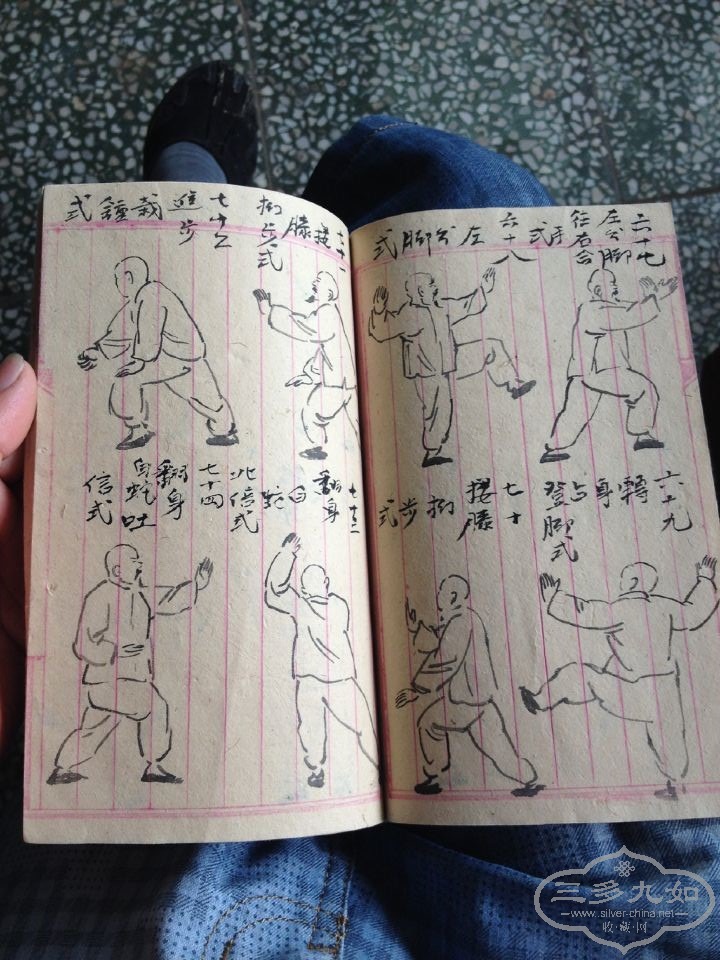 六十七
左分脚
往右合
手式
六十八
左分脚式
六十九
轉身
登脚式
七十
摟膝
拗步式
七十一
摟膝
拗步式
七十二
進步
栽鍾式
七十三
翻身
白蛇
信式
七十四
翻身
白蛇吐
信式
三多九如
www.silver-china.net
收·藏·网